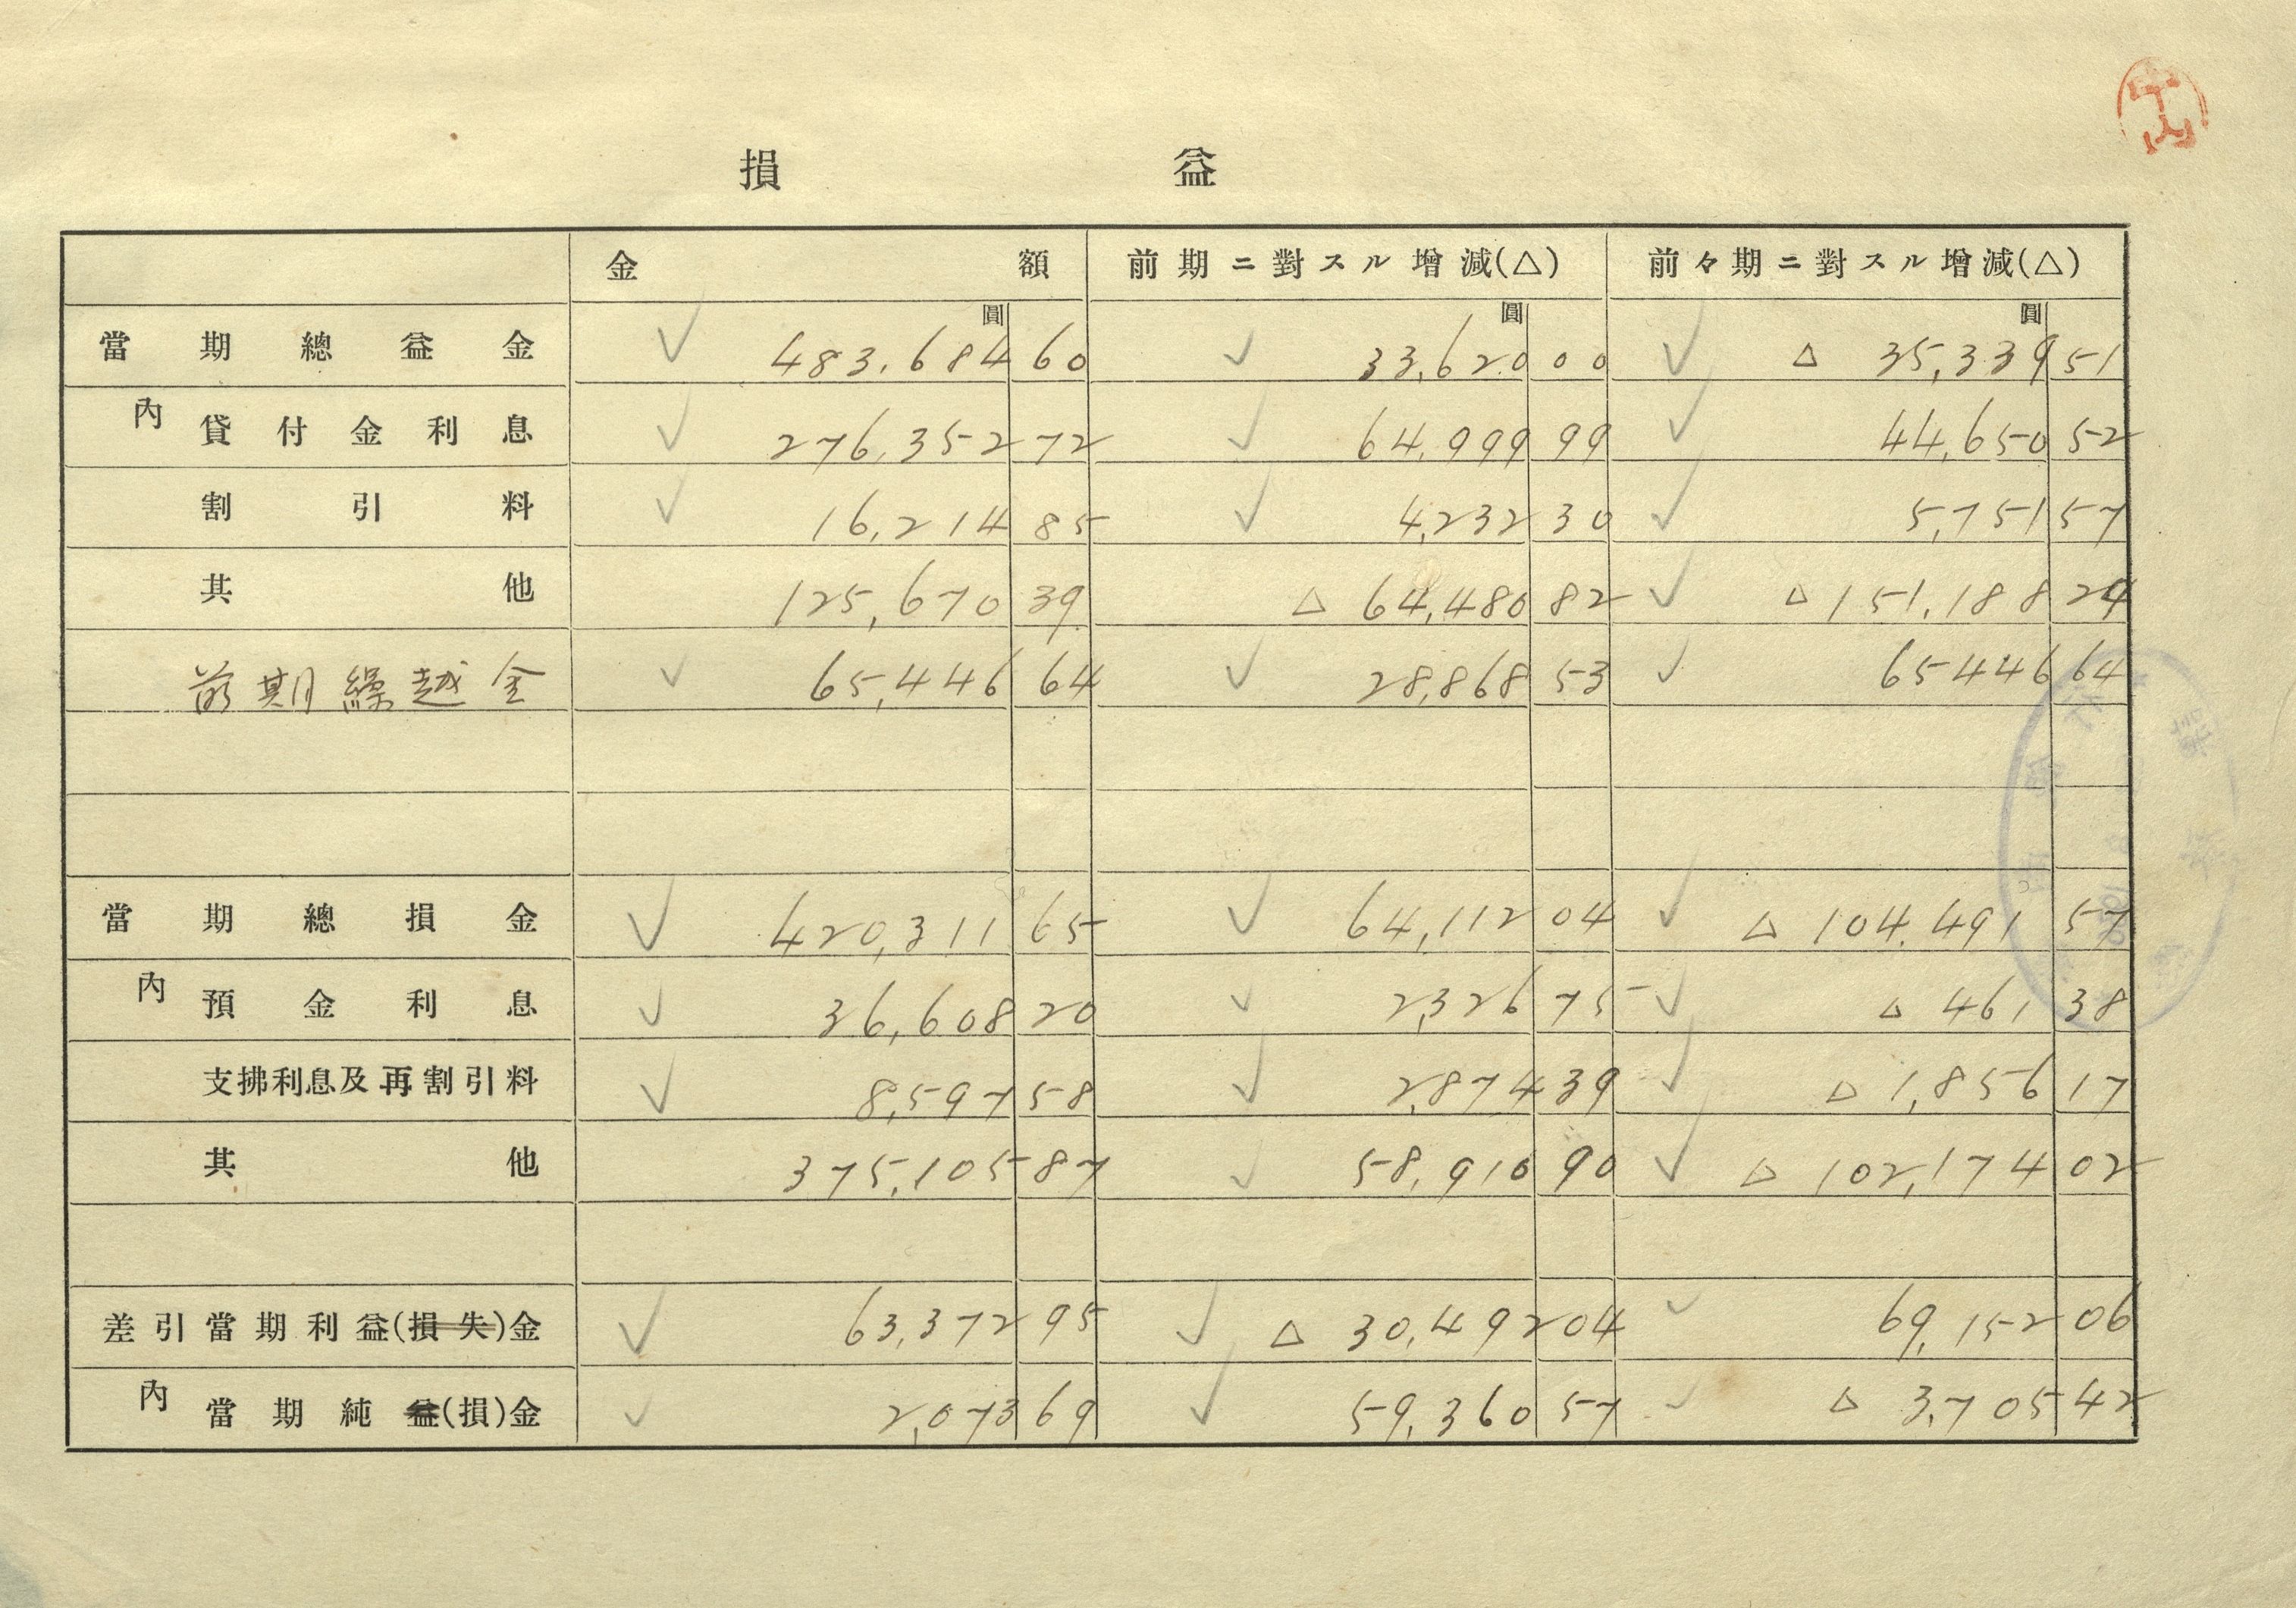 損 益
金 額 前期ニ對スル增減(△) 前々期ニ對スル增減(△)
圓 圓 圓
當期總益金 483,684 60 33,620 00 △ 35,339 51
內 貸付金利息 276,352 72 64,999 99 44,650 52
割引料 16,214 85 4,232 30 5,751 57
其他 125,670 39 △ 64,480 82 △ 151,188 24
前期繰越金 65,446 64 28,868 53 65446 64
當期總損金 420,311 65 64,112 04 △ 104,491 57
內 預金利息 36,608 20 2,326 75 △ 461 38
支拂利息及再割引料 8,597 58 2,874 39 △ 1,856 17
其他 375,105 87 58,910 90 △ 102,174 02
差引當期利益(損失)金 63,372 95 △ 30,492 04 69,152 06
內 當期純益(損)金 2,073 69 59,360 57 △ 3,705 42